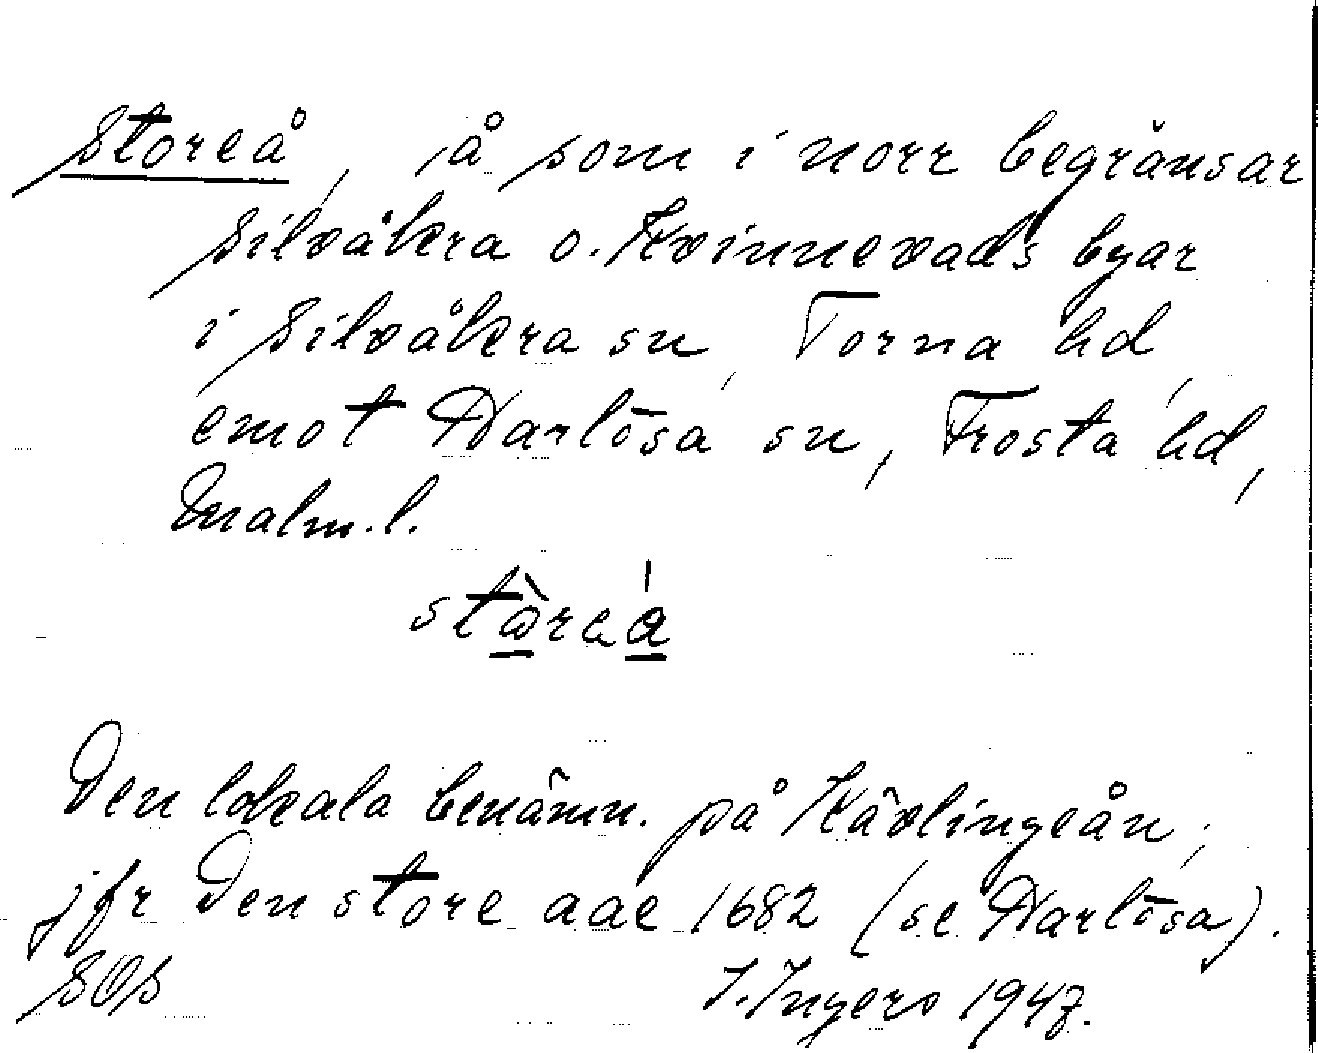 Storeå, å som i norr begränsar
Silvåkra o. Kvinnevads byar
i Silvåkra sn, Torna hd,
emot Harlösa sn, Frosta hd,
Malm.l.
Den lokala benämn. på Kävlingeån;
jfr Den store aae 1682 (se Harlösa).
SOS I. Ingers 1947.